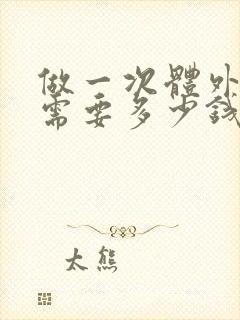 做一次體外
需要多少錢
太熊